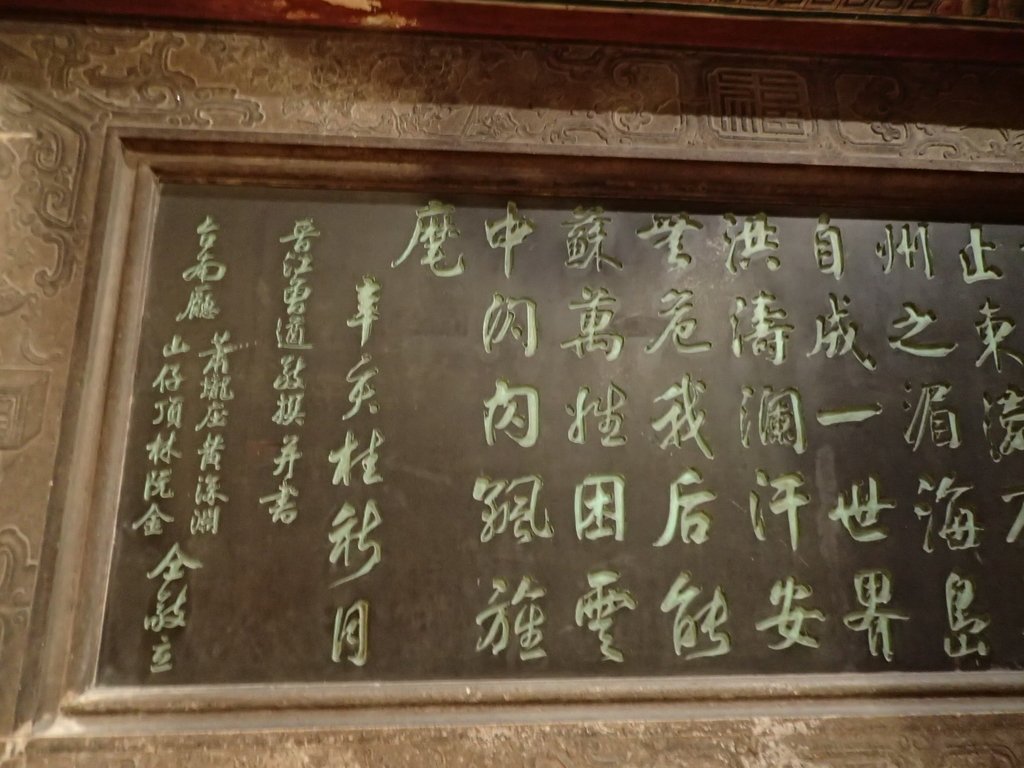 止東
州之湄海島
自成一世界
洪濤瀾汗安
無危我后能
蘇萬姓困雲
中閃閃飄旌
麾
辛亥桂秋月
晉江曾道敬撰并書
台南廳
蕭壠庄黃深淵
山仔頂林阮金
仝敬立